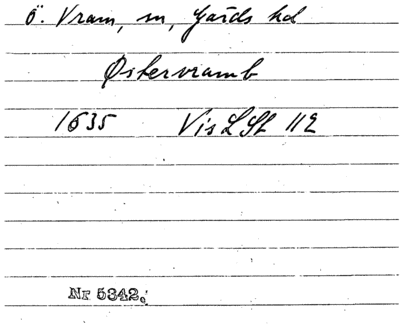 Ö. Vram, sn, Gärds hd
Østervramb
1635 Vis L St 112
Nr 5342.